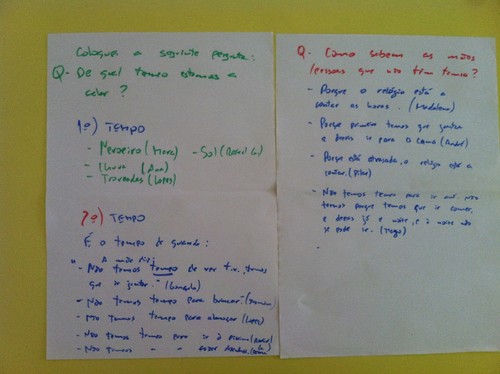 Coloquei a seguinte pergunta:
Q- De que tempo estamos a
falar?
1º) TEMPO
- Nevoeiro (Mara) - Sol (
- Chuva (Ana)
- Trovoadas (Lopes)
2º) TEMPO
É o tempo de quando:
"A mãe diz
- Não temos tempo de ver t.v., temos
que ir jantar." (Gonçalo)
- Não temos tempo para brincar. (
- Não temos tempo para almoçar (Lopes)
- Não temos tempo para ir à piscina (
- Não temos " " fazer
Q. Como sabem as mães
pessoas que não têm tempo?
- Porque o relógio está a
contar as horas. (Madalena)
- Porque primeiro temos que jantar
e depois ir para a cama (André)
- Porque está atrasada, o relógio está a
contar. (Pilar)
- Não temos tempo para ir
temos porque temos que ir comer,
e depois já é noite, e à noite não
se pode ir. (Tiago)